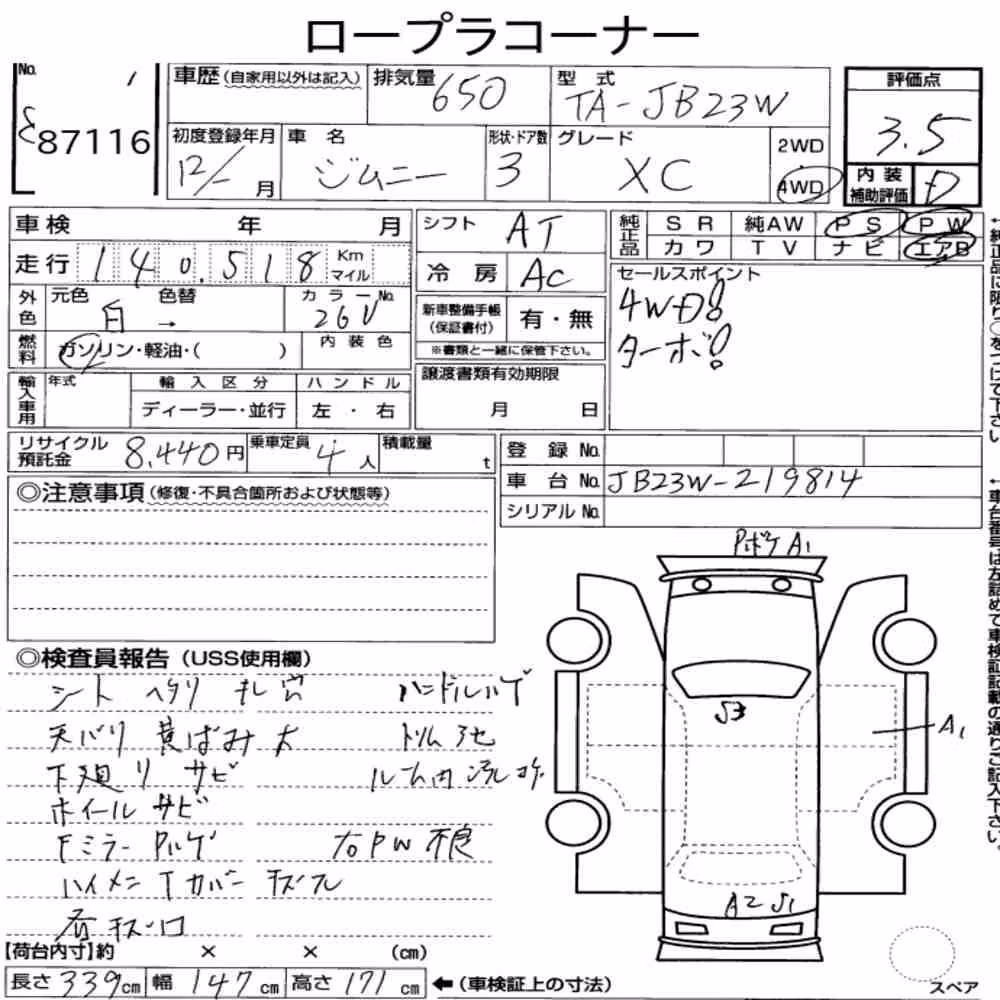 ロープラコーナー
No. 87116
車歴 (自家用以外は記入) 排気量 650 型式 TA-JB23W 評価点 3.5
初度登録年月 12/ー月 車名 ジムニー 形状・ドア数 3 グレード XC 2WD 4WD
内装補助評価 D
車検 年 月 シフト AT 純正品 SR 純AW PS PW
カワ TV ナビ エアB
走行 140,518 Km マイル 冷房 AC
セールスポイント
4WD!
ターボ!
外色 元色 白 色替 → カラーNo. 26U
新車整備手帳(保証書付) 有・無
※書類と一緒に保管下さい。
燃料 ガソリン・軽油・( ) 内装色
譲渡書類有効期限 月 日
輸入車用 年式 輸入区分 ハンドル
ディーラー・並行 左・右
リサイクル預託金 8,440円 乗車定員 4人 積載量 t
登録No.
車台No. JB23W-219814
シリアルNo.
◎注意事項 (修復・不具合箇所および状態等)
←純正品に限り○をつけて下さい
←車台番号は左詰めで車検証記載の通りご記入下さい。
A1
S3
A1
A2 S1
スペア
◎検査員報告 (USS使用欄)
シート ヘタリ キレ 穴 ハンドルハゲ
天バリ 黄ばみ大
下廻り サビ
ホイール サビ
Fミラー 右PW不良
【荷台内寸】約 × × (cm)
長さ 339cm 幅 147cm 高さ 171cm ←(車検証上の寸法)